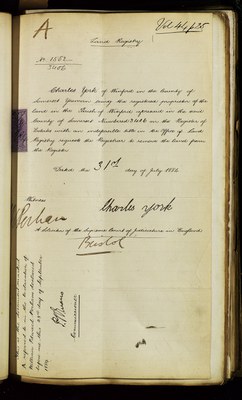 A
Vol 44 p 25
Land Registry
No. 1562
3406
Charles York of Winford in the County of
Somerset Yeoman being the registered proprietor of the
Land in the Parish of Winford aforesaid in the said
County of Somerset Numbered 3406 in the Register of
Estates with an indefeasible title in the Office of Land
Registry requests the Registrar to remove the Land from
the Register.
Dated the 31st day of July 1882
Witness
Charles York
A Solicitor of the Supreme Court of Judicature in England.
Bristol
referred to in the declaration of
William
before me this day of September
1882
Commissioner